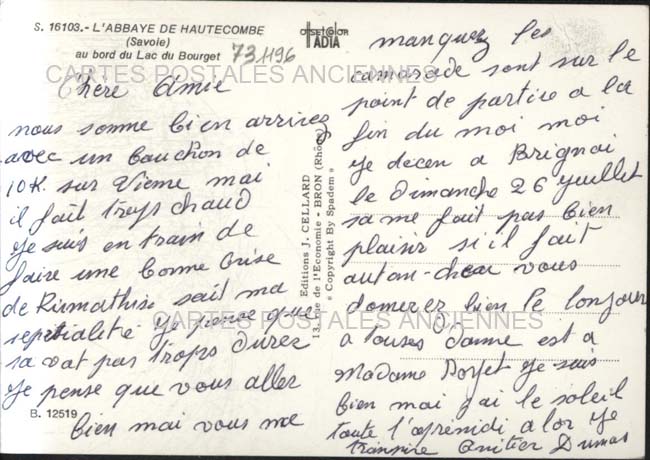 S. 16103.- L'ABBAYE DE HAUTECOMBE
(Savoie)
au bord du Lac du Bourget
731196
offset color
IADIA
CARTES POSTALES ANCIENNES
Chere Amie
nous somme bien arrivez
avec un bouchon de
10 K. sur Vieme mai
il fait trops chaud
je suis en train de
faire une bonne crise
de Rumathise sait ma
je pence que
sa vat pas trops durez
je pense que vous aller
bien mai vous me
B. 12519
Editions J. CELLARD
13, rue de l'Economie - BRON (Rhône)
« Copyright By Spadem »
manquez les
camarade sont sur le
point de partire a la
fin du moi moi
je decen a Brignai
le Dimanche 26 juillet
sa me fait pas bien
plaisir si il fait
autan chau vous
domerez bien le bonjour
a toutes Dame est a
Madame je suis
bien mai j'ai le soleil
toute l'aprenidi alor je
transpire Dumas
CARTES POSTALES ANCIENNES